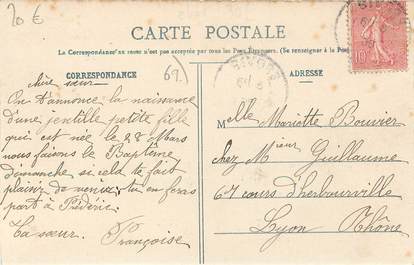 20 €
CARTE POSTALE
La Correspondance au recto n'est pas acceptée par tous les Pays Etrangers. (Se renseigner à la Poste)
CORRESPONDANCE
69.)
ADRESSE
chère sœur
On t'annonce la naissance
d'une jentille petite fille
qui est née le 28 Mars
nous faisons le Baptême
dimanche si cela te fait
plaisir de venir tu en feras
part à Frédéric
Ta sœur Françoise
Melle Mariette Bouvier
chez Mr Guillaume
67 cours d'herbouville
Lyon Rhône
GIVORS
10